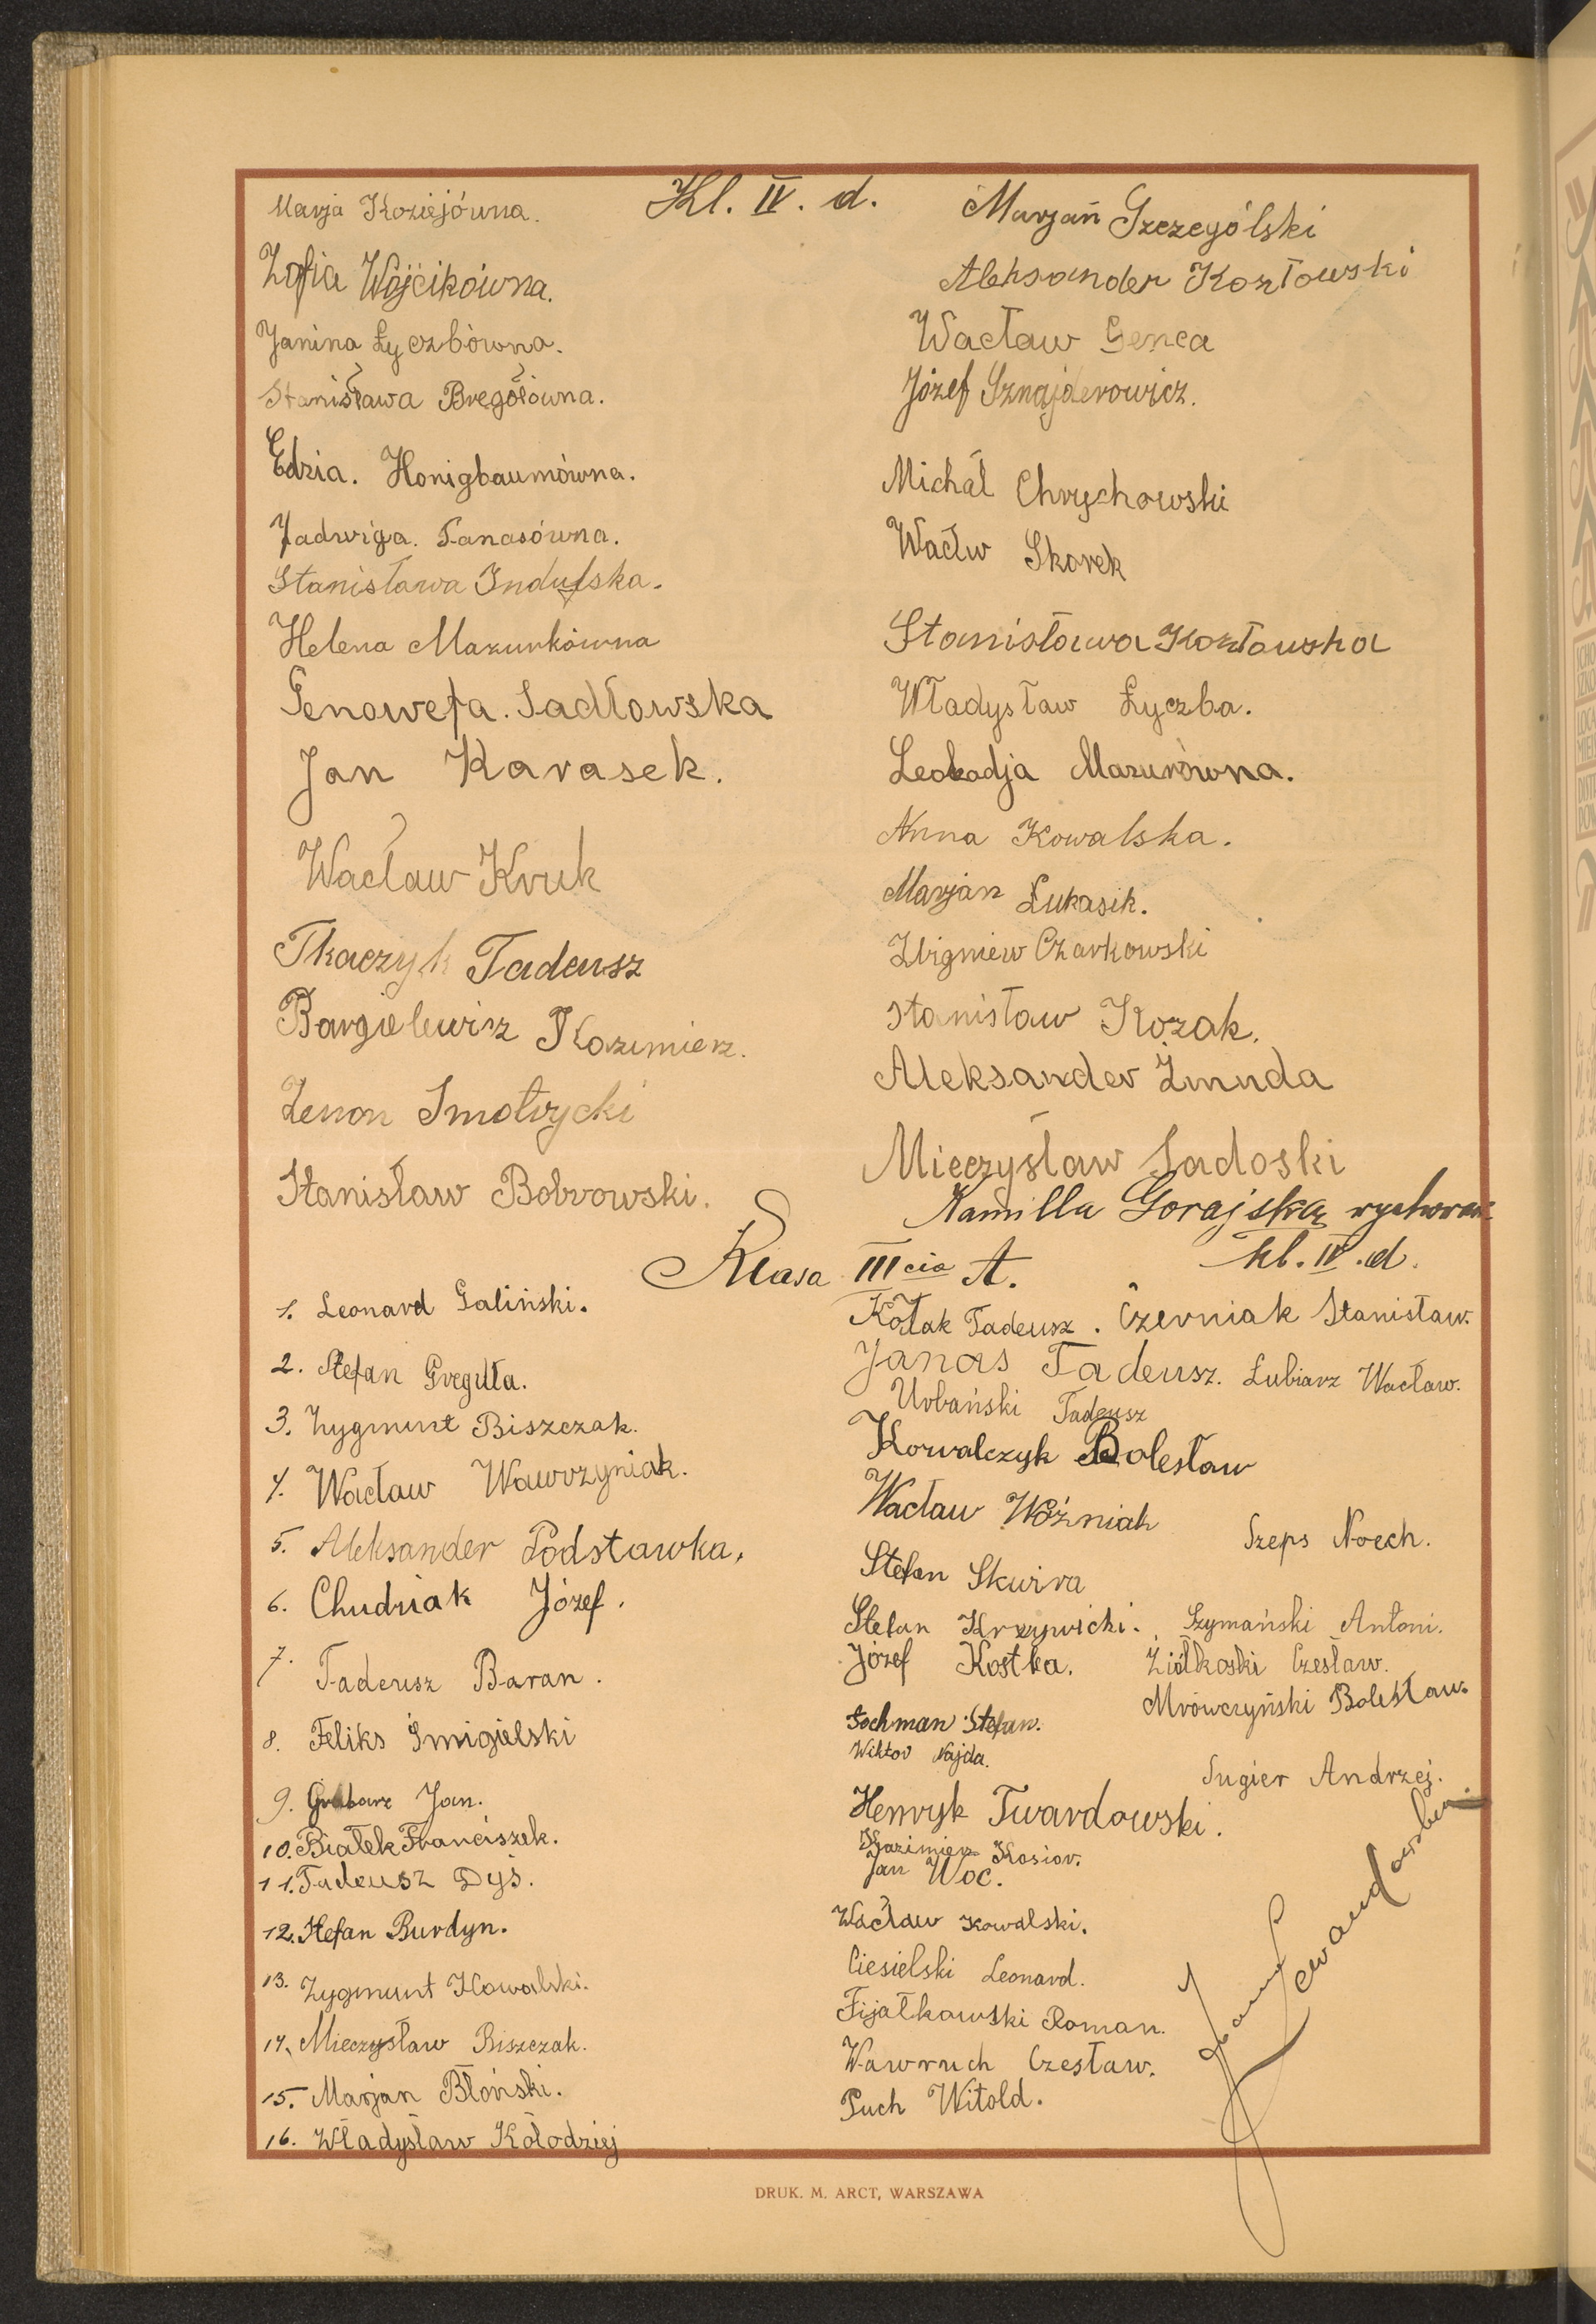 Kl. IV. d.
Marja Koziejówna.
Zofia Wójcikówna.
Janina Łyczbówna.
Stanisława Bregółówna.
Edzia. Honigbaumówna.
Jadwiga. Tanasówna.
Stanisława Indulska.
Helena Mazurkówna
Genowefa. Sadłowska
Jan Karasek.
Wacław Kruk
Tkaczyk Tadeusz
Bargielewicz Kazimierz.
Zenon Smotrycki
Stanisław Bobrowski.
Marjan Szczególski
Aleksander Kozłowski
Wacław Genca
Józef Sznajderowicz.
Michał Chrychowski
Wacłw Skorek
Stanisława Kozłowska
Władysław Łyczba.
Leokadja Mazurówna.
Anna Kowalska.
Marjan Łukasik.
Zbigniew Czarkowski
Stanisław Kozak.
Aleksander Żmuda
Mieczysław Sadoski
Kamilla Gorajska
kl. IV. d.
Klasa III cia A.
1. Leonard Galiński.
2. Stefan Greguła.
3. Zygmunt Biszczak.
4. Wacław Wawrzyniak.
5. Aleksander Podstawka.
6. Chudniak Józef.
7. Tadeusz Baran.
8. Feliks Śmigielski
9. Grabarz Jan.
10. Białek Franciszek.
11. Tadeusz Dyś.
12. Stefan Burdyn.
13. Zygmunt Kowalski.
14. Mieczysław Biszczak.
15. Marjan Błoński.
16. Władysław Kołodziej
Kołtak Tadeusz. Czerniak Stanisław.
Janas Tadeusz. Łubiarz Wacław.
Urbański Tadeusz
Kowalczyk Bolesław
Wacław Woźniak
Szeps Noech.
Stefan Skwira
Stefan Krzywicki. Szymański Antoni.
Józef Kostka. Ziółkoski Czesław.
Mrówczyński Bolesław.
Sochman Stefan.
Wiktor Najda.
Sugier Andrzej.
Henryk Twardowski.
Kazimierz Kosior.
Jan Woc.
Wacław Kowalski.
Ciesielski Leonard.
Fijałkowski Roman.
Wawruch Czesław.
Puch Witold.
DRUK. M. ARCT, WARSZAWA